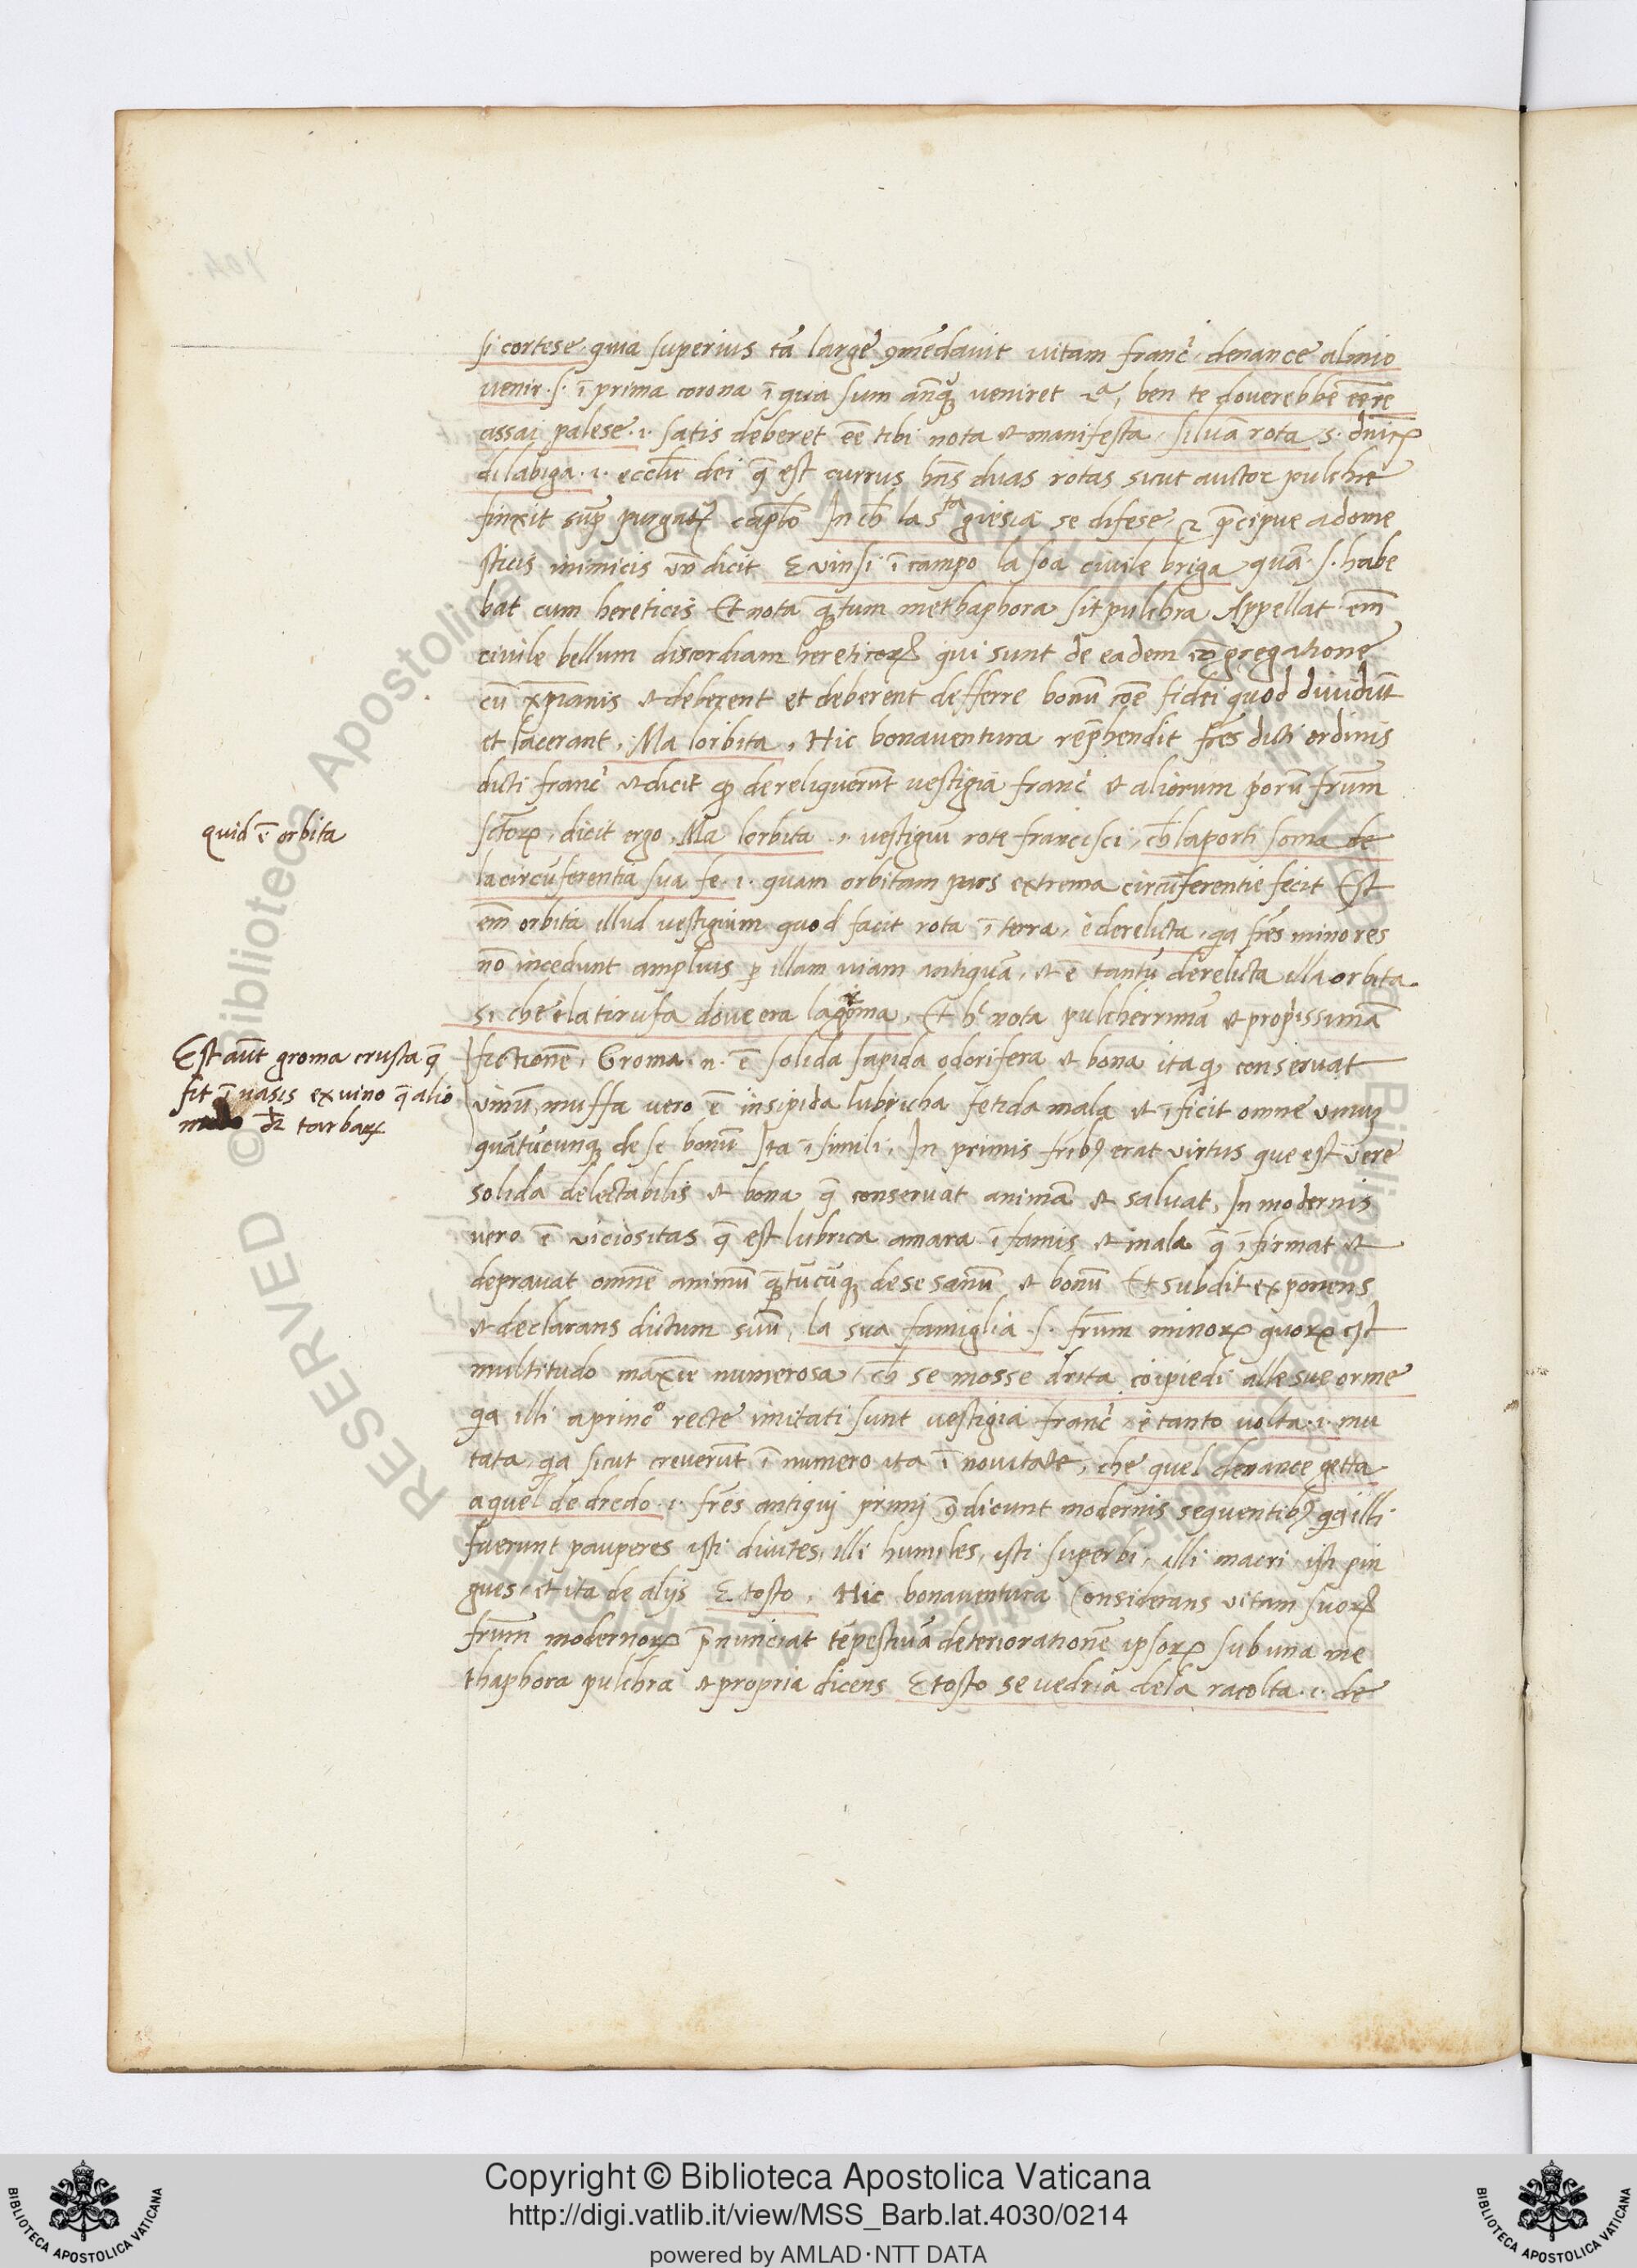 si cortese. quia superius tā large 9mēdavit vitam franci. denance al mio
venir .s. ī prima corona ī qua sum anq̃ veniret ben te doverebbe eēre
assai palese .i. satis deberet eē tibi nota et manifesta, si luna rota .s. dnici
dila biga .i. ecclie dei q̄ est currus hn̄s duas rotas sicut auctor pulchre
finxit sup̃ purgat. capl̄o In ch̄ la s.ta giesia se difese, et p̄cipue a dome
sticis inimicis vn̄ dicit E vinsi ī campo la soa civile briga quā .s. habe
bat cum hereticis Et nota q̄tum methaphora sit pulchra Appellat em̄
civile bellum discordiam hereticoꝝ qui sunt de eadem cōgregatione
cū xp̄ianis et deberent et deberent defferre bonū cōe fidei quod dividūt
et lacerant. Ma lorbita. Hic bonaventura rep̄hendit frēs dicti ordinis
dicti franci et dicit qp dereliquerūt vestigia franci et aliorum priorū frūm
sctōꝝ, dicit ergo, Ma lorbita .i. vestigiū rote francisci, ch̄ la porti soma de
la circūferentia sua fe .i. quam orbitam pars extrema circūferentie fecit Est
em̄ orbita illud vestigium quod facit rota ī terra, è derelicta, qa frēs minores
nō incedunt amplius p illam viam antiquā, et ē tantū derelicta illa orbita
si che e la tirufa dove era la groma, Et hic nota pulcherrimā et propissimā
fictionē, Groma .n. ē solida sapida odorifera et bona itaq̄ conservat
vinū, muffa vero ē insipida lubricha fetida mala et īficit omne vinuȝ
quātūcunq̃ de se bonū Ita ī simili, In primis frib9 erat virtus que est vere
solida delectabilis et bona q̄ conservat animā et salvat, In modernis
vero ē viciositas q̄ est lubrica amara īfamis et mala q̄ īfirmat et
depravat omnē animū q̄tūcūq̃ de se sanū et bonū Et subdit exponens
et declarans dictum suū, la sua famiglia .s. frūm minoꝝ quoꝝ est
multitudo māxie numerosa, ch̄ se mosse drita coi piedi alle sue orme
qa illi a princo recte imitati sunt vestigia franci è tanto volta .i. mu
tata, qa sicut creverūt ī numero ita ī novitate, che quel denance getta
a quel de dredo .i. frēs antiqui primi 9dicunt modernis sequentib9 qa illi
fuerunt pauperes isti divites, illi humiles, isti superbi, illi macri isti pin
gues, et ita de alijs E tosto. Hic bonaventura Considerans vitam suoꝝ
frūm modernoꝝ p̄nunciat tēpestivā deteriorationē ipsoꝝ sub una me
thaphora pulchra et propria dicens E tosto se vedria dela racolta .i. de
quid ē orbita
Est aūt groma crusta q̄
fit ī vasis ex vino q̄ alio
modo dr̄
Copyright © Biblioteca Apostolica Vaticana
http://digi.vatlib.it/view/MSS_Barb.lat.4030/0214
powered by AMLAD·NTT DATA
BIBLIOTECA APOSTOLICA VATICANA
BIBLIOTECA APOSTOLICA VATICANA